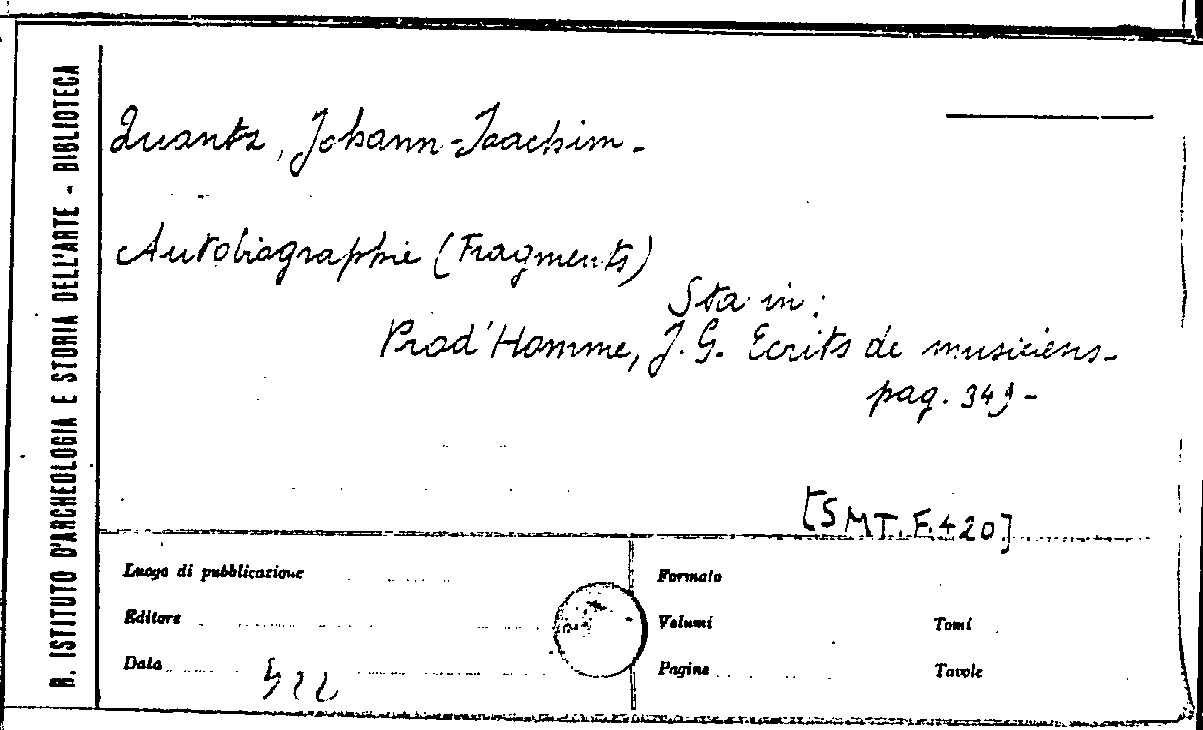 R. ISTITUTO D'ARCHEOLOGIA E STORIA DELL'ARTE - BIBLIOTECA
Quantz, Johann-Joachim -
Autobiographie (Fragments)
Sta in:
Prod'Homme, J. G. Ecrits de musiciens -
pag. 349 -
[S MT. F. 420]
Luogo di pubblicazione
Formato
Editore
Volumi
Tomi
Data
Pagine
Tavole